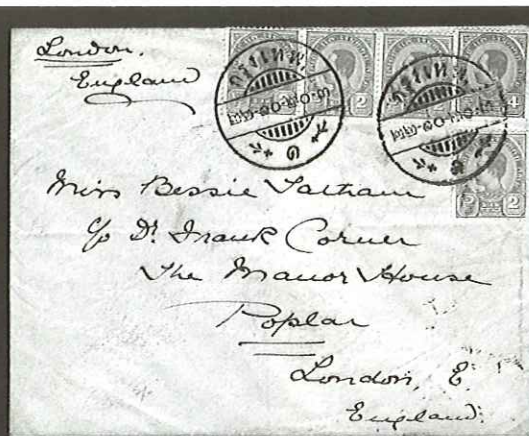 London.
England
กรุงเทพฯ
2
4
2
Miss Bessie Latham
c/o Dr. Frank Corner
The Manor House
Poplar
London, E.
England.